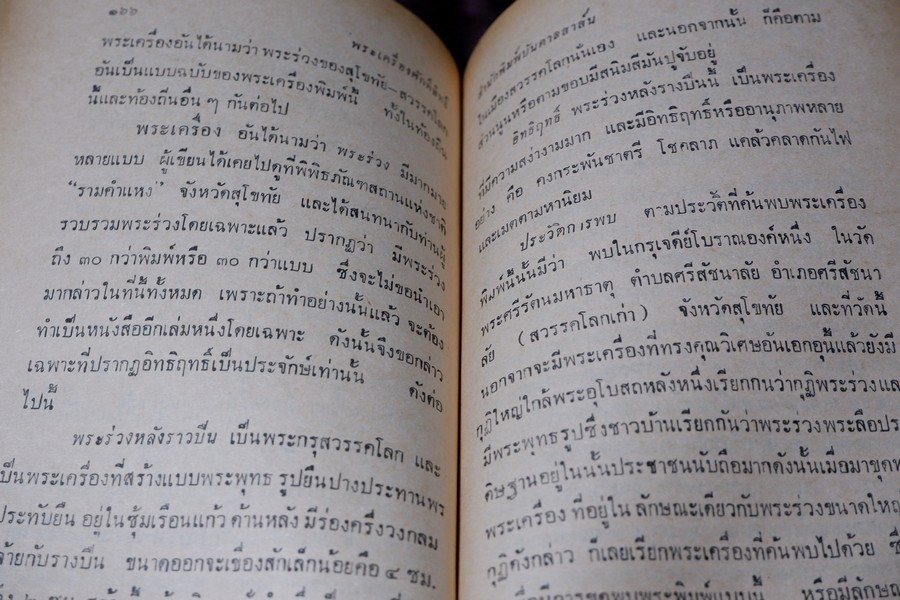 ๑๖๖
พระเครื่องศักดิ์สิทธิ์
พระเครื่องอันได้นามว่า พระร่วงของสุโขทัย-สวรรคโลก
อันเป็นแบบฉบับของพระเครื่องพิมพ์นี้ ทั้งในท้องถิ่น
นี้และท้องถิ่นอื่น ๆ กันต่อไป
พระเครื่อง อันได้นามว่า พระร่วง มีมากมาย
หลายแบบ ผู้เขียนได้เคยไปดูที่พิพิธภัณฑสถานแห่งชาติ
“รามคำแหง” จังหวัดสุโขทัย และได้สนทนากับท่านผู้
รวบรวมพระร่วงโดยเฉพาะแล้ว ปรากฏว่า มีพระร่วง
ถึง ๓๐ กว่าพิมพ์หรือ ๓๐ กว่าแบบ ซึ่งจะไม่ขอนำเอา
มากล่าวในที่นี้ทั้งหมด เพราะถ้าทำอย่างนั้นแล้ว จะต้อง
ทำเป็นหนังสืออีกเล่มหนึ่งโดยเฉพาะ ดังนั้นจึงขอกล่าว
เฉพาะที่ปรากฏอิทธิฤทธิ์เป็นประจักษ์เท่านั้น ดังต่อ
ไปนี้
พระร่วงหลังราวปืน เป็นพระกรุสวรรคโลก และ
เป็นพระเครื่องที่สร้างแบบพระพุทธ รูปยืนปางประทานพร
ประทับยืน อยู่ในซุ้มเรือนแก้ว ด้านหลัง มีร่องครึ่งวงกลม
ล้ายกับรางปืน ขนาดออกจะเขื่องสักเล็กน้อยคือ ๔ ซม.
สำนักพิมพ์บันดาลสาส์น
ในเมืองสวรรคโลกนั่นเอง และนอกจากนั้น ก็คือตาม
ส่วนนูนหรือตามขอบมีสนิมสีมันปูจับอยู่
อิทธิฤทธิ์ พระร่วงหลังรางปืนนี้ เป็นพระเครื่อง
ที่มีความสง่างามมาก และมีอิทธิฤทธิ์หรืออานุภาพหลาย
อย่าง คือ คงกระพันชาตรี โชคลาภ แคล้วคลาดกันไฟ
และเมตตามหานิยม
ประวัติการพบ ตามประวัติที่ค้นพบพระเครื่อง
พิมพ์นี้นั้นมีว่า พบในกรุเจดีย์โบราณองค์หนึ่ง ในวัด
พระศรีรัตนมหาธาตุ ตำบลศรีสัชนาลัย อำเภอศรีสัชนา
ลัย (สวรรคโลกเก่า) จังหวัดสุโขทัย และที่วัดนี้
นอกจากจะมีพระเครื่องที่ทรงคุณวิเศษอันเอกอุนี้แล้วยังมี
กุฏิใหญ่ใกล้พระอุโบสถหลังหนึ่งเรียกกนว่ากุฏิพระร่วงแล
มีพระพุทธรูปซึ่งชาวบ้านเรียกกันว่าพระร่วงพระลือประ
ดิษฐานอยู่ในนั้นประชาชนนับถือมากดังนั้นเมื่อมาขุดพ
พระเครื่อง ที่อยู่ใน ลักษณะเดียวกับพระร่วงขนาดใหญ่
กุฏิดังกล่าว ก็เลยเรียกพระเครื่องที่ค้นพบไปด้วย ซึ่
มีการขุดพบพระพิมพ์แบบนี้ หรือมีลักษณ